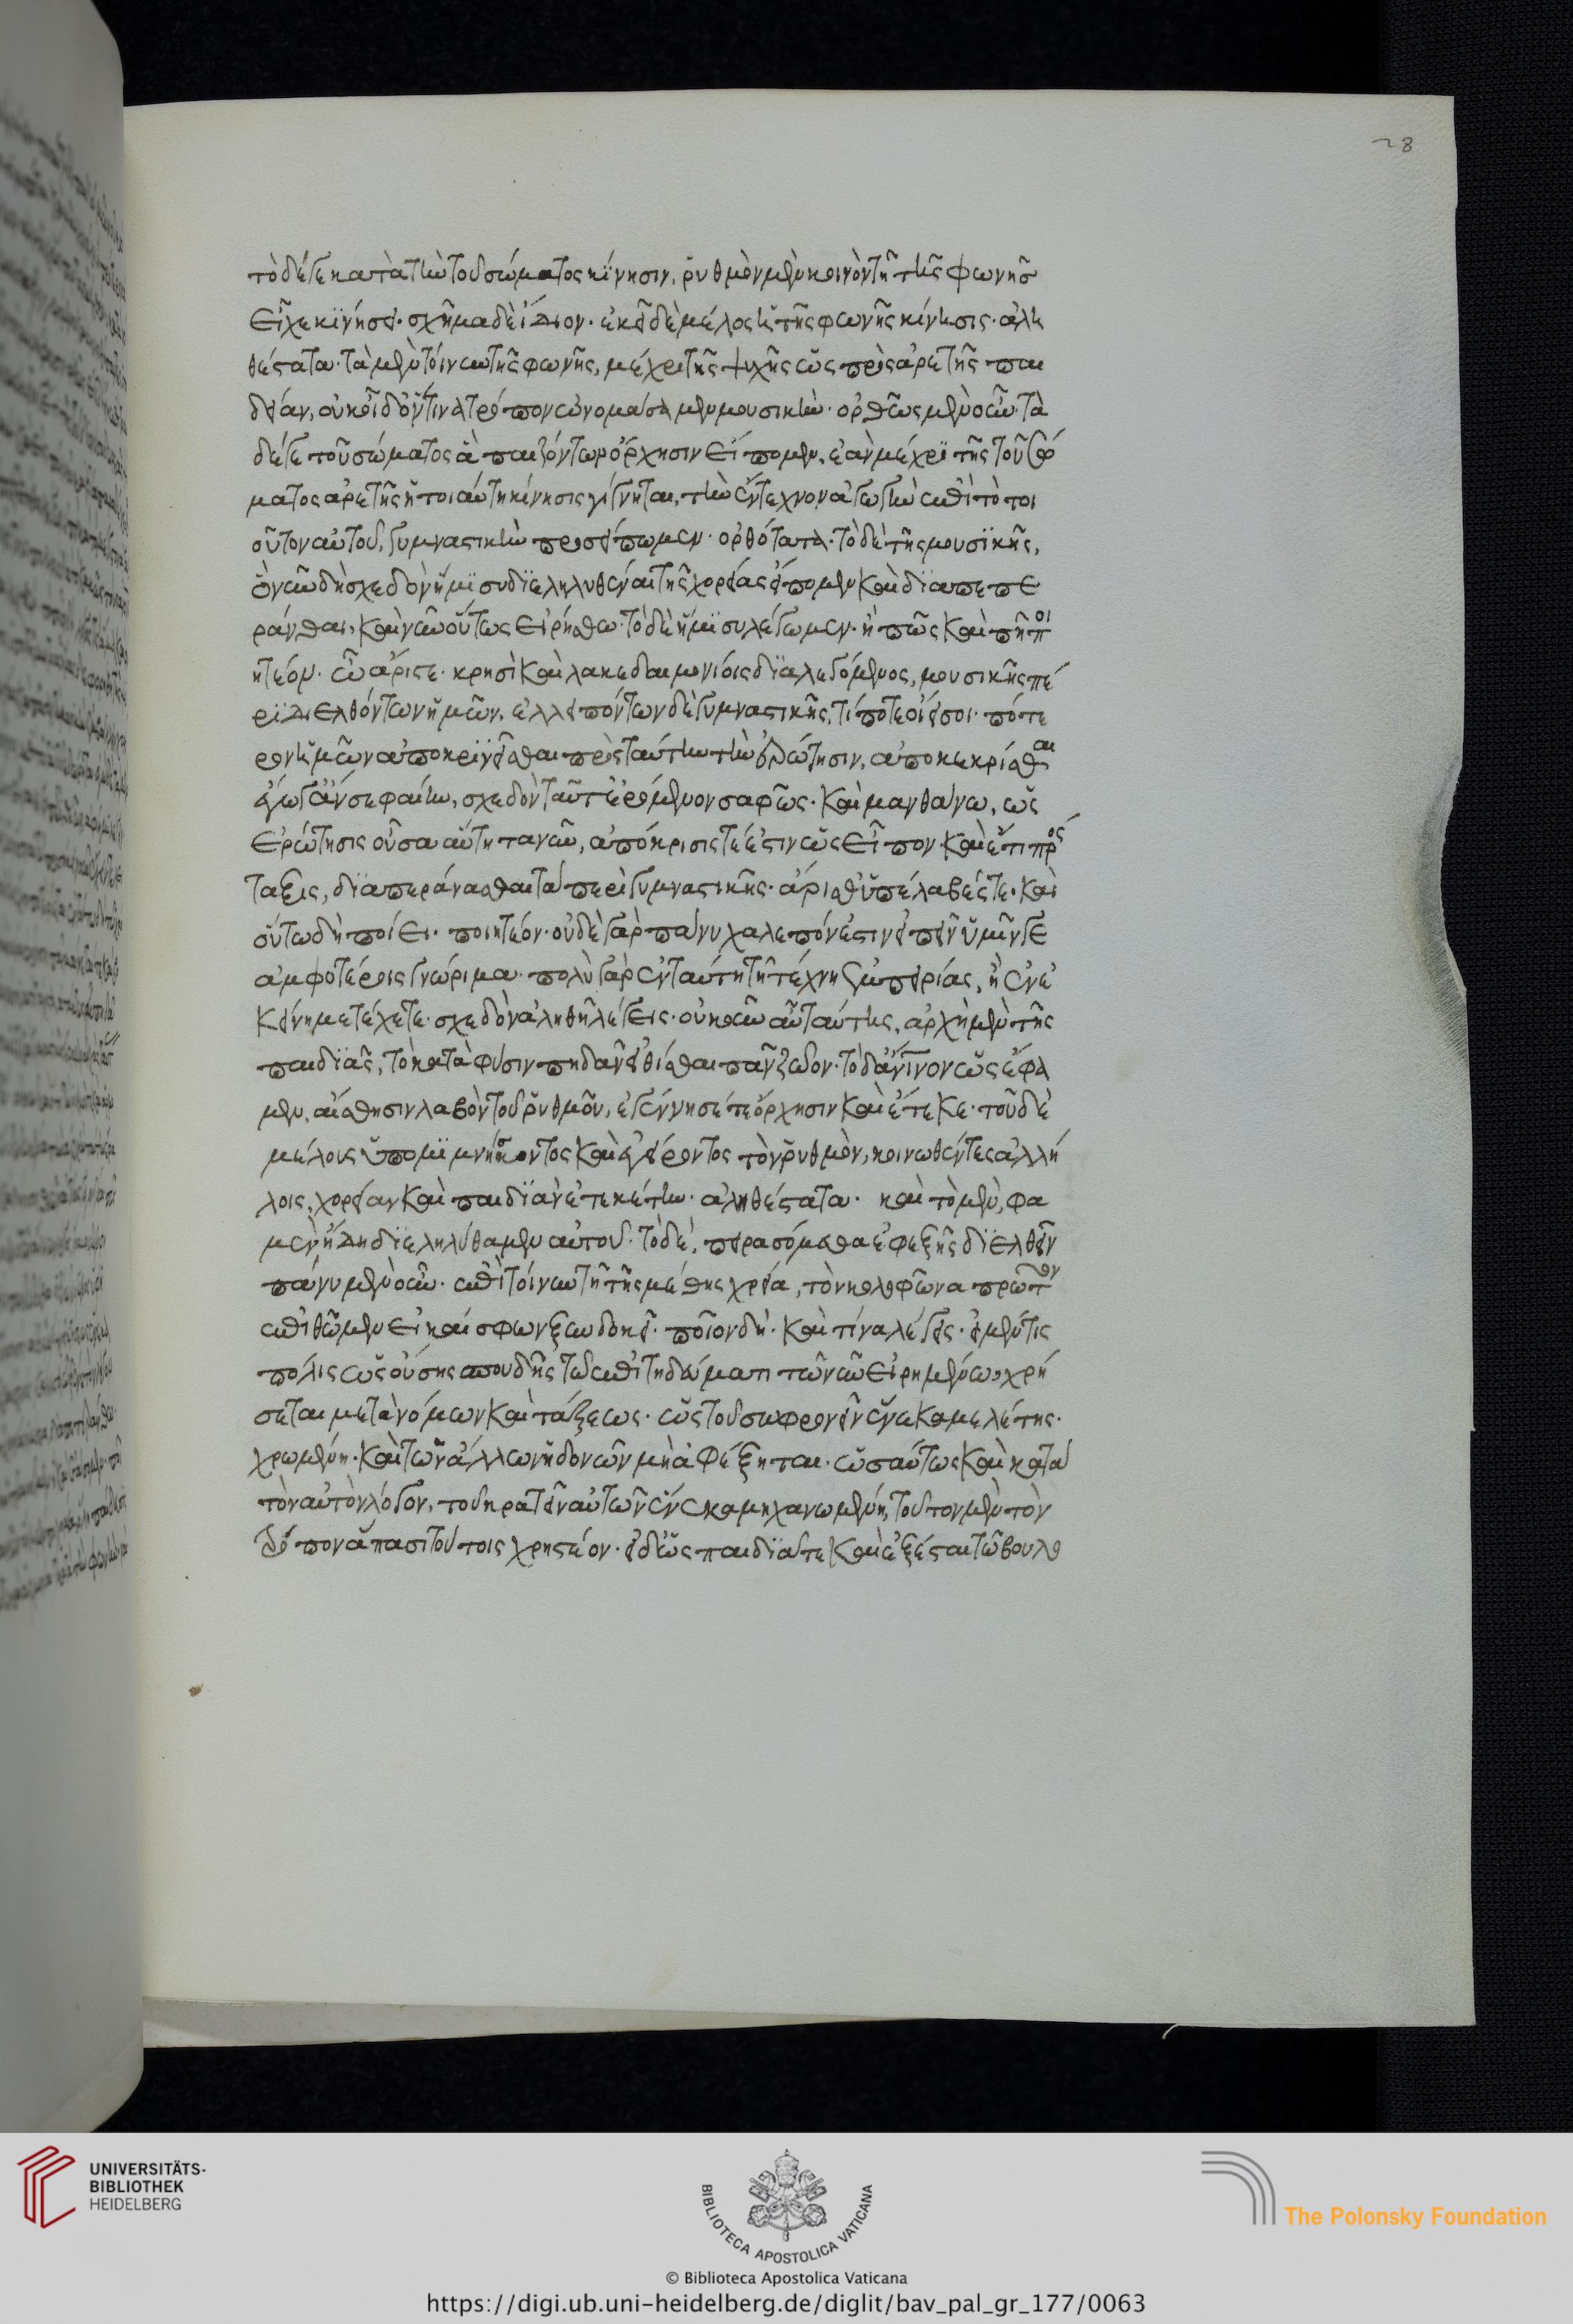 28
τὸ δέ γε κατὰ τὴν τοῦ σώματος κίνησιν, ῥυθμὸν μὲν κοινὸν τῆ τῆς φωνῆς
εἶχε κινήσει· σχῆμα δὲ ἴδιον· ἐκεῖ δὲ μέλος ἡ τῆς φωνῆς κίνησις· ἀλη
θέστατα· τὰ μὲν τοίνυν τῆς φωνῆς, μέχρι τῆς ψυχῆς ὡς πρὸς ἀρετῆς παι
δείαν, οὐκ οἶδ' ὅντινα τρόπον ὠνομάσαμεν μουσικήν· ὀρθῶς μὲν οὖν· τὰ
δέ γε τοῦ σώματος ἃ παιζόντων ὄρχησιν εἴπομεν, ἐὰν μέχρι τῆς τοῦ σώ
ματος ἀρετῆς ἡ τοιαύτη κίνησις γίγνηται, τὴν ἔντεχνον ἀγωγὴν ἐπὶ τὸ τοι
οῦτον αὐτοῦ, γυμναστικὴν προσείπωμεν· ὀρθότατα· τὸ δὲ τῆς μουσικῆς,
ὃ νῦν δὴ σχεδὸν ἥμισυ διεληλυθέναι τῆς χορείας εἴπομεν καὶ διαπεπε
ράνθαι, καὶ νῦν οὕτως εἰρήσθω· τὸ δὲ ἥμισυ λέγωμεν· ἢ πῶς καὶ πῆ ποι
ητέον· ὦ ἄριστε· κρησὶ καὶ λακεδαιμονίοις διαλεγόμενος, μουσικῆς πέ
ρι διελθόντων ἡμῶν, ἐλλειπόντων δὲ γυμναστικῆς, τί ποτε οἴει σοι· πότε
ρον ἡμῶν ἀποκρινεῖσθαι πρὸς ταύτην τὴν ἐρώτησιν, ἀποκεκρίσθαι
ἔγωγ' ἄν σε φαίην, σχεδὸν ταῦτ' ἐρόμενον σαφῶς· καὶ μανθάνω, ὡς
ἐρώτησις οὖσα αὕτη τανῦν, ἀπόκρισίς τέ ἐστιν ὡς εἶπον· καὶ ἔτι πρόσ
ταξις, διαπεράνασθαι τὰ περὶ γυμναστικῆς· ἄρισθ' ὑπέλαβές τε· καὶ
οὕτω δὴ ποίει· ποιητέον· οὐδὲ γὰρ πάνυ χαλεπόν ἐστιν εἰπεῖν ὑμῖν γε
ἀμφοτέροις γνώριμα· πολὺ γὰρ ἐν ταύτη τῆ τέχνη ἐμπειρίας, ἢ ἐν ἐ
κείνη μετέχετε· σχεδὸν ἀληθῆ λέγεις· οὐκοῦν αὖ ταύτης, ἀρχὴ μὲν τῆς
παιδιᾶς, τὸ κατὰ φύσιν πηδᾶν εἰθίσθαι πᾶν ζῶον· τὸ δ' ἀνινον ὡς ἔφα
μεν, αἴσθησιν λαβὸν τοῦ ῥυθμοῦ, ἐγέννησέ τε ὄρχησιν καὶ ἔτεκε· τοῦ δὲ
μέλους ὑπομιμνήσκοντος καὶ ἐγείροντος τὸν ῥυθμὸν, κοινωθέντες ἀλλή
λοις, χορείαν καὶ παιδιὰν ἐτεκέτην· ἀληθέστατα· καὶ τὸ μὲν, φα
μὲν ἤδη διεληλύθαμεν αὐτοῦ· τὸ δὲ, πειρασόμεθα ἐφεξῆς διελθεῖν
πάνυ μὲν οὖν· ἐπὶ τοίνυν τῆ τῆς μέθης χρεία, τὸν κολοφῶνα πρῶτον
ἐπιθῶμεν εἰ καὶ σφῶν ξυνδοκεῖ· ποῖον δὴ· καὶ τίνα λέγεις· εἰ μέν τις
πόλις ὡς οὔσης σπουδῆς τῶ ἐπιτηδεύματι τῶ νῦν εἰρημένω χρή
σεται μετὰ νόμων καὶ τάξεως· ὡς τοῦ σωφρονεῖν ἕνεκα μελέτης·
χρωμένη· καὶ τῶν ἄλλων ἡδονῶν μὴ ἀφέξηται· ὡσαύτως καὶ κατὰ
τὸν αὐτὸν λόγον, τοῦ κρατεῖν αὐτῶν ἕνεκα μηχανωμένη, τοῦτον μὲν τὸν
τρόπον ἅπασι τούτοις χρηστέον· εἰ δ' ὡς παιδιᾶ τε καὶ ἐξέσται τῶ βουλο
UNIVERSITÄTS-
BIBLIOTHEK
HEIDELBERG
BIBLIOTECA APOSTOLICA VATICANA
The Polonsky Foundation
© Biblioteca Apostolica Vaticana
https://digi.ub.uni-heidelberg.de/diglit/bav_pal_gr_177/0063